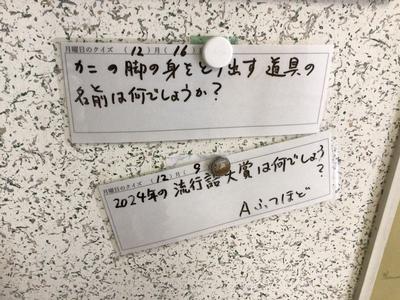 月曜日のクイズ (12)月(16)
カニの脚の身をとり出す道具の
名前は何でしょうか?
月曜日のクイズ (12)月(9
2024年の流行語大賞は何でしょう
?
A ふてほど